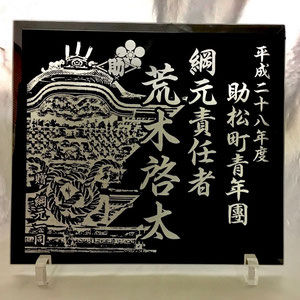 平成二十八年度
助松町青年團
綱元責任者
荒木啓太
助
綱元一同